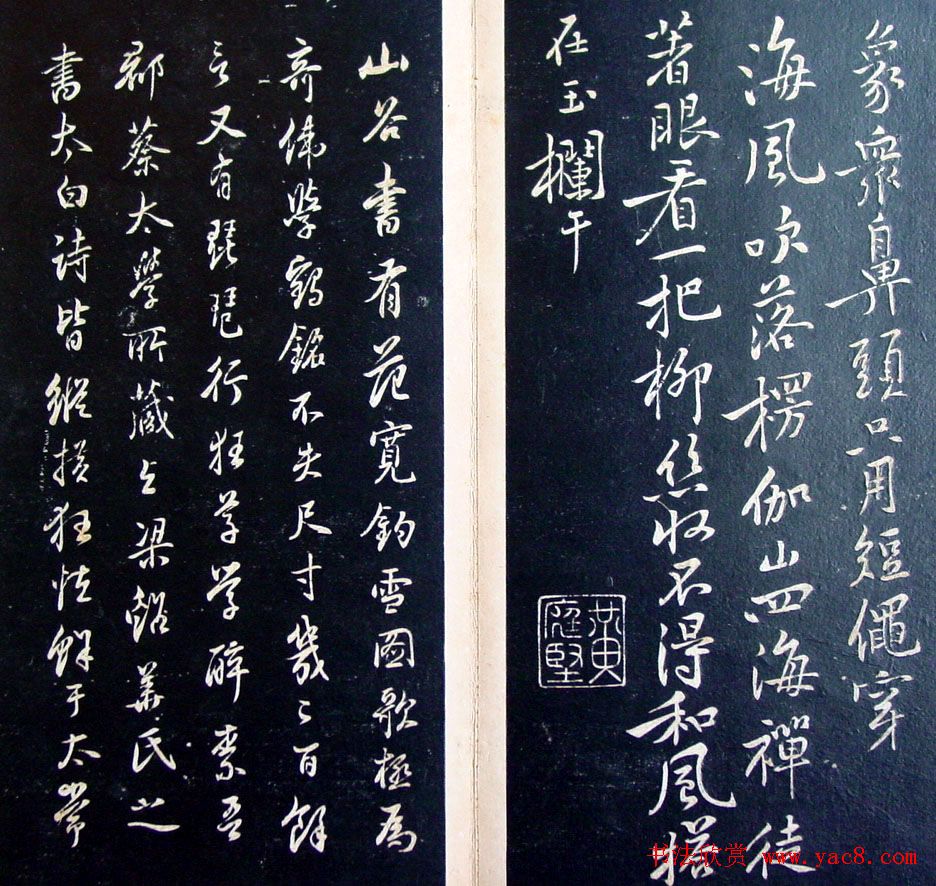 象眾鼻頭只用短繩穿
海風吹落楞伽山四海禪徒
著眼看一把柳絲收不得和風搭
在玉欄干
黃庭堅
山谷書有范寬釣雪圖歌極為
奇佚學鶴銘不失尺寸幾〻百餘
言又有琵琶行狂草學醉素吾
郡蔡太學所藏与梁谿華氏之
書太白詩皆縱橫狂怪鮮于太常
书法欣赏 www.yac8.com